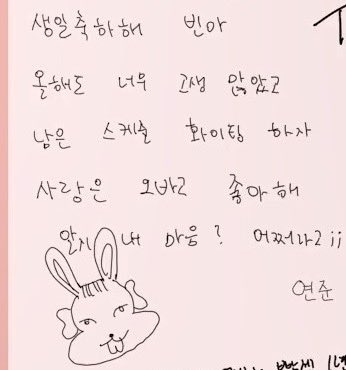 생일축하해 빈아
올해도 너무 고생 많았고
남은 스케줄 화이팅 하자
사랑은 오바고 좋아해
알지 내 마음? 어쩌라고ii
연준